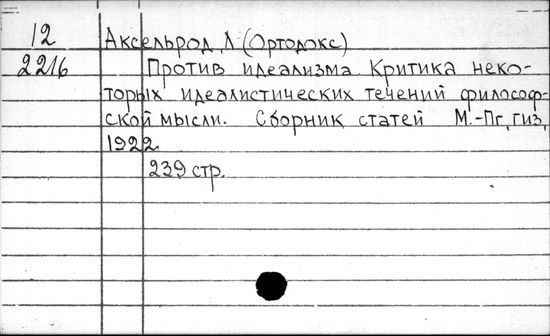 12
Аксельрод, Л (Ортодокс)
2216
Против идеализма. Критика неко-
торых идеалистических течений философ-
ской мысли. Сборник статей М.-Пг, гиз,
1922.
239 стр.